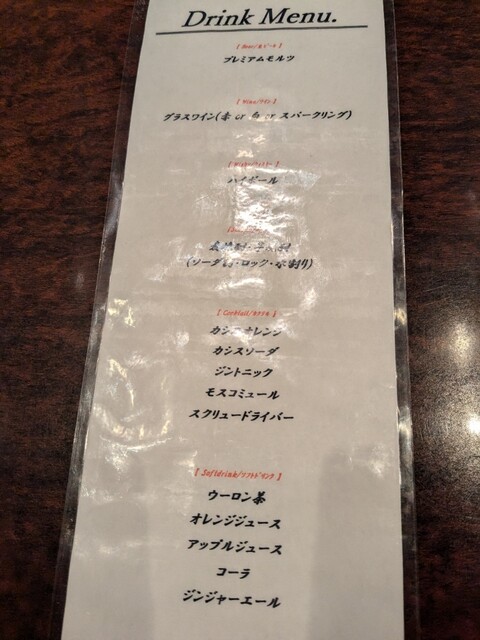 Drink Menu.
【 Beer/生ビール 】
プレミアムモルツ
【 Wine/ワイン 】
グラスワイン(赤 or 白 or スパークリング)
ハイボール
(ソーダ割・ロック・水割り)
【 Cocktail/カクテル 】
カシスオレンジ
カシスソーダ
ジントニック
モスコミュール
スクリュードライバー
【 Softdrink/ソフトドリンク 】
ウーロン茶
オレンジジュース
アップルジュース
コーラ
ジンジャーエール